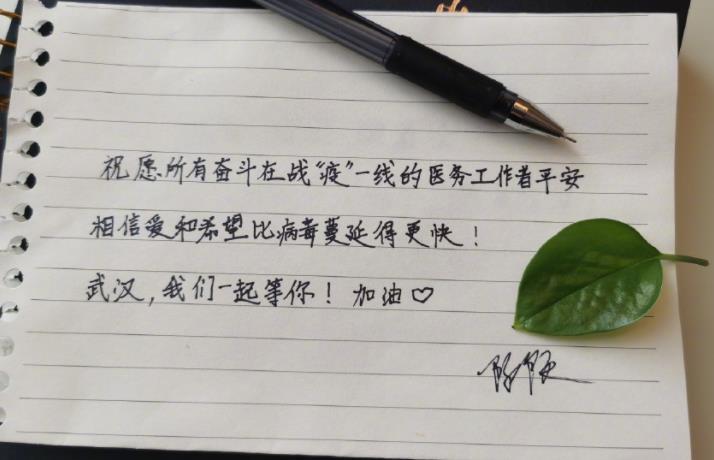 祝愿所有奋斗在战“疫”一线的医务工作者平安
相信爱和希望比病毒蔓延得更快！
武汉，我们一起等你！加油♡